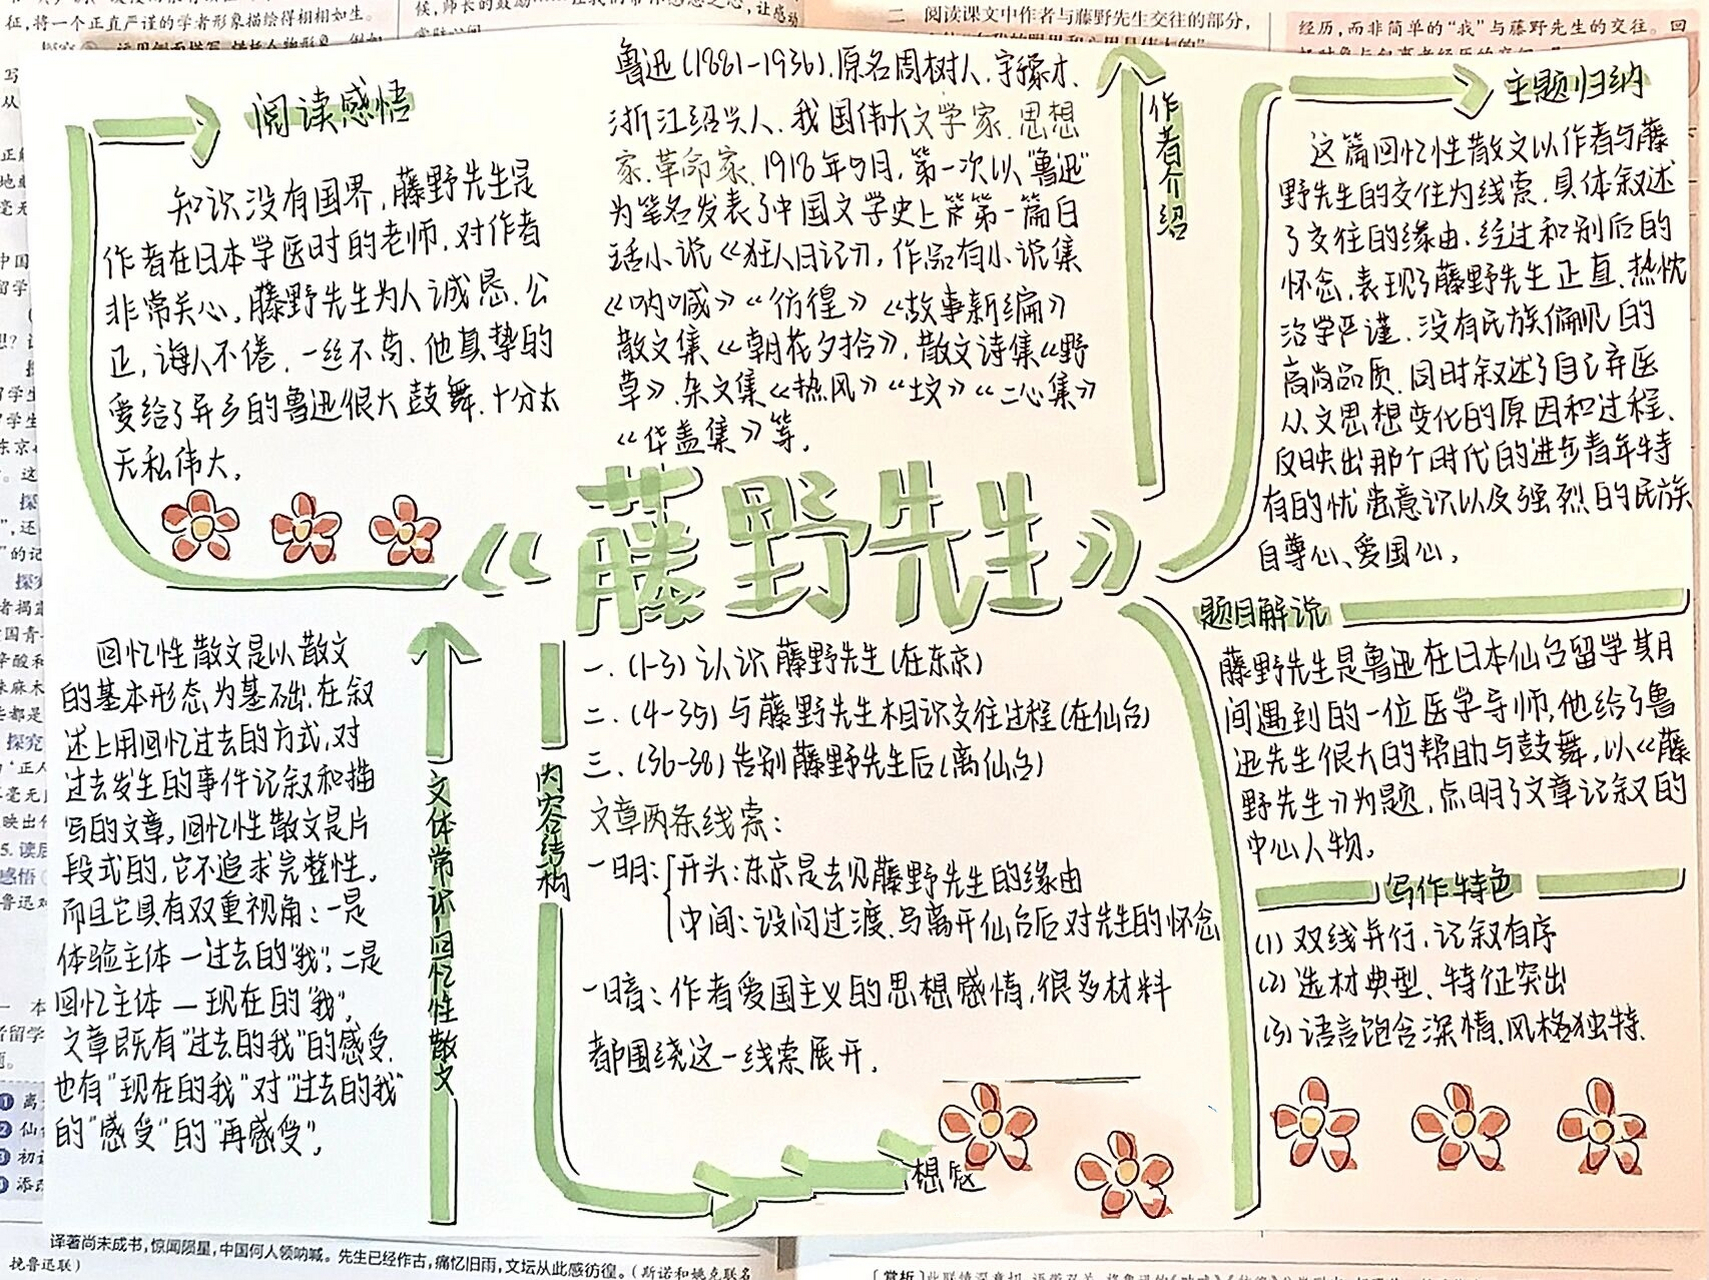 阅读感悟
知识没有国界,藤野先生是
作者在日本学医时的老师.对作者
非常关心,藤野先生为人诚恳.公
正,诲人不倦.一丝不苟.他真挚的
爱给了异乡的鲁迅很大鼓舞.十分太
无私伟大。
鲁迅(1881-1936).原名周树人.字豫才.
浙江绍兴人.我国伟大文学家.思想
家.革命家.1918年5月,第一次以"鲁迅"
为笔名发表了中国文学史上第一篇白
话小说《狂人日记》,作品有小说集
《呐喊》《彷徨》《故事新编》
散文集《朝花夕拾》,散文诗集《野
草》.杂文集《热风》《坟》《二心集》
《华盖集》等。
作者介绍
主题归纳
这篇回忆性散文以作者与藤
野先生的交往为线索.具体叙述
了交往的缘由.经过和别后的
怀念,表现了藤野先生正直.热忱
治学严谨.没有民族偏见的
高尚品质.同时叙述了自己弃医
从文思想变化的原因和过程、
反映出那个时代的进步青年特
有的忧患意识以及强烈的民族
自尊心、爱国心。
《藤野先生》
回忆性散文是以散文
的基本形态为基础.在叙
述上用回忆过去的方式,对
过去发生的事件记叙和描
写的文章,回忆性散文是片
段式的,它不追求完整性。
而且它具有双重视角:一是
体验主体—过去的"我",二是
回忆主体—现在的"我"。
文章既有"过去的我"的感受.
也有"现在的我"对"过去的我"
的"感受"的"再感受"。
文体常识—回忆性散文
内容结构
一.(1-3)认识藤野先生(在东京)
二.(4-35)与藤野先生相识交往过程(在仙台)
三.(36-38)告别藤野先生后(离仙台)
文章两条线索:
一明:开头:东京是去见藤野先生的缘由
中间:设问过渡.写离开仙台后对先生的怀念
一暗:作者爱国主义的思想感情,很多材料
都围绕这一线索展开。
想
题目解说
藤野先生是鲁迅在日本仙台留学期
间遇到的一位医学导师,他给了鲁
迅先生很大的帮助与鼓舞,以《藤
野先生》为题,点明了文章记叙的
中心人物。
写作特色
(1)双线并行,记叙有序
(2)选材典型、特征突出
(3)语言饱含深情.风格独特.
译著尚未成书,惊闻陨星,中国何人领呐喊。先生已经作古,痛忆旧雨,文坛从此感彷徨。(斯诺和姚克联名
挽鲁迅联)